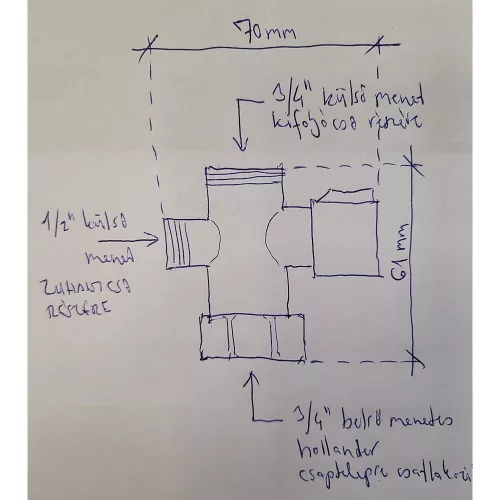 70mm
3/4" külső menet
kifolyócső részére
1/2" külső
menet
ZUHANYCSŐ
RÉSZÉRE
61 mm
3/4" belső menetes
hollander
csaptelepre csatlakozi